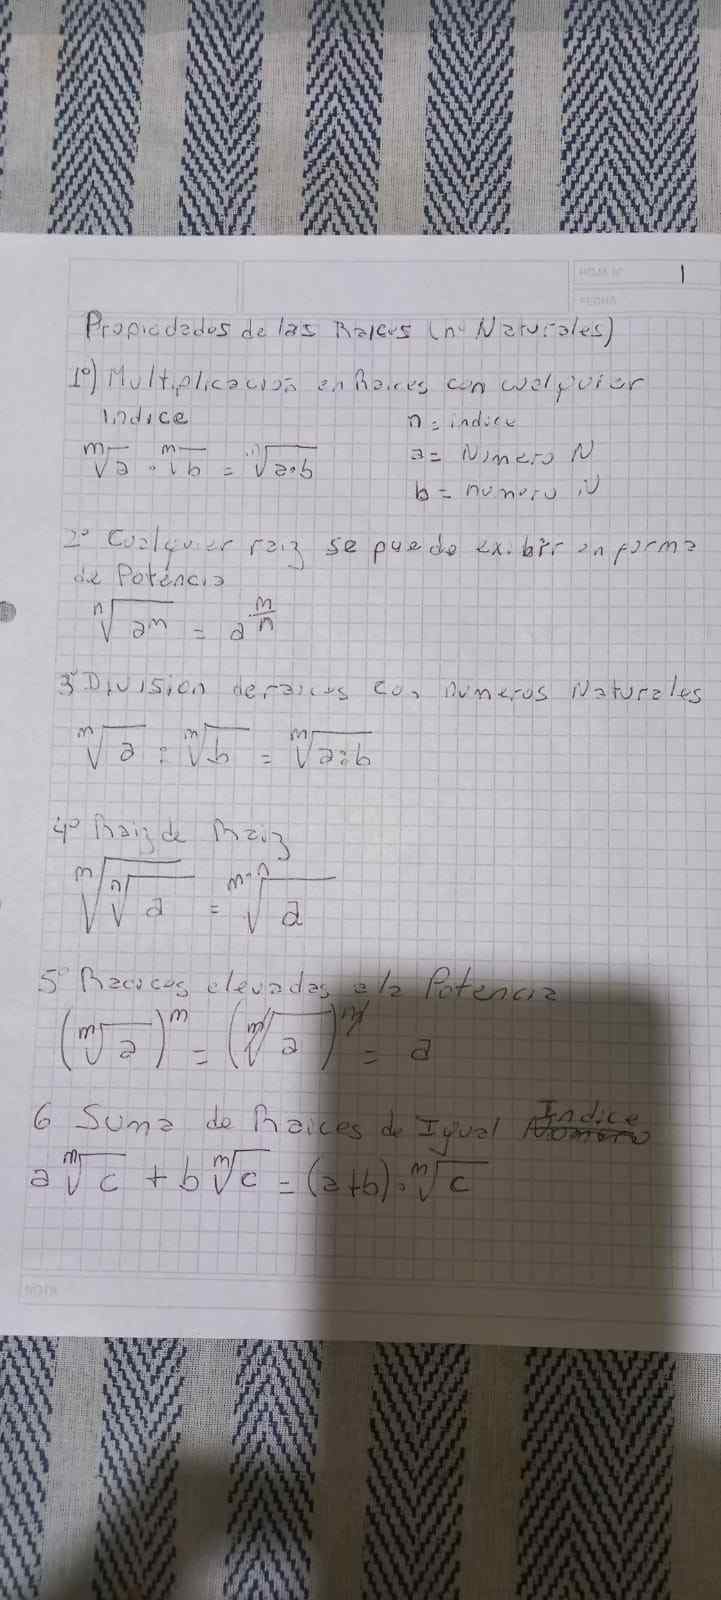 HOJA Nº 1
FECHA
Propiedades de las Raices (nº Naturales)
1º) Multiplicación en Raices con cualquier
indice n = indice
ᵐ√a · ᵐ√b = √a·b a = Número N
b = numero N
2º Cualquier raiz se puede exibir en forma
de Potencia
ⁿ√aᵐ = a^(m/n)
3º Division de raices con numeros Naturales
ᵐ√a : ᵐ√b = ᵐ√a:b
4º Raiz de Raiz
ᵐ√ⁿ√a = ᵐ·ⁿ√a
5º Raices elevadas a la Potencia
(ᵐ√a)ᵐ = (ᵐ√a)ᵐ = a
6 Suma de Raices de Igual Indice
a ᵐ√c + b ᵐ√c = (a+b)·ᵐ√c